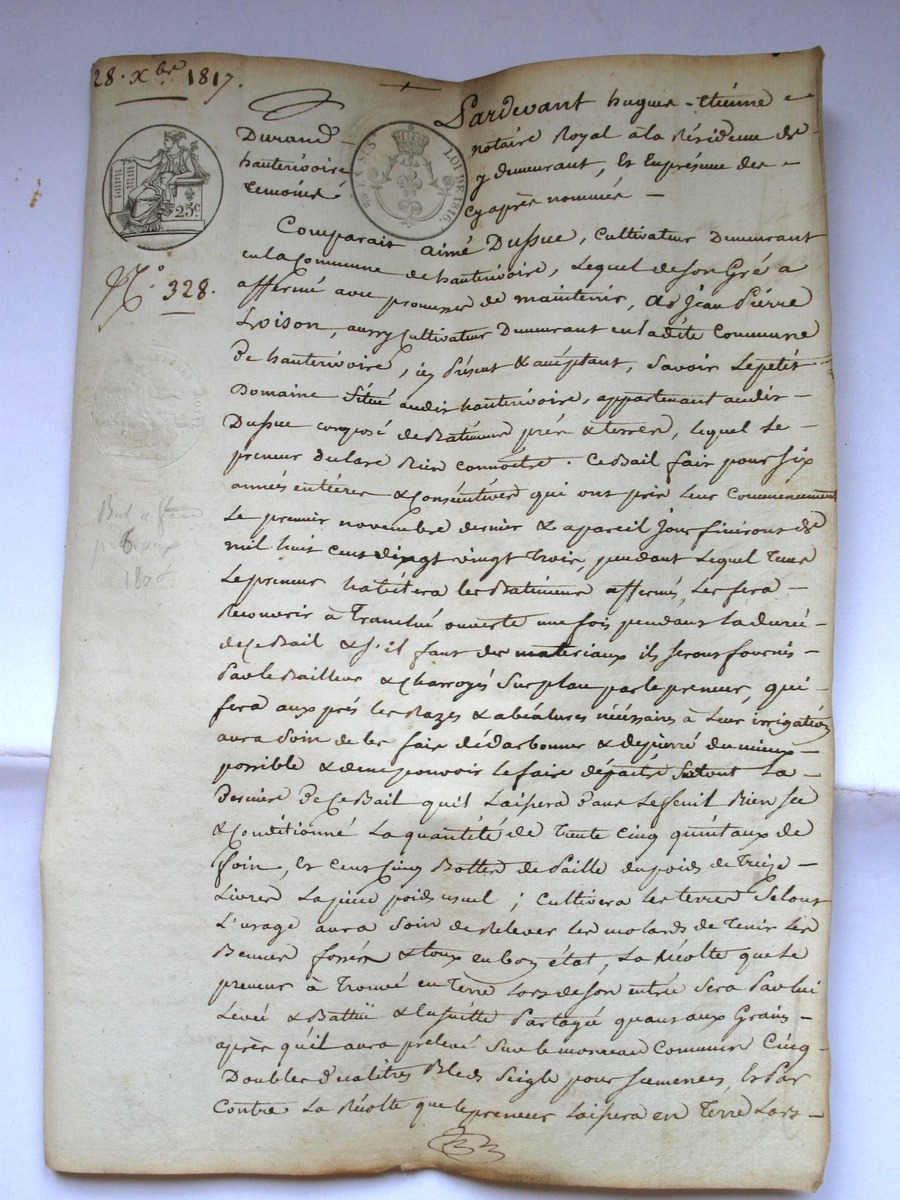 28. Xbre 1817.
Pardevant hugues-Etienne
Durand notaire Royal à la Résidence de
hauterivoire y demeurant, Et En présence des
Temoins cyaprès nommés
25c.
LOI DE 1816.
Comparait aimé Dussuc, Cultivateur Demeurant
en la Commune de hauterivoire, Lequel de son Gré a
N° 328.
affermé avec promesse de maintenir, à Jean Pierre
Loison, aussy Cultivateur Demeurant en ladite Commune
De hauterivoire, icy présent & acceptant, Savoir Le petit
Domaine Situé audit hauterivoire, appartenant audit
Dussuc composé de Batiments prés & terres, lequel Le
preneur Declare Bien connoitre. Ce Bail fait pour Six
années entieres & Consécutives qui ont pris Leur Commencement
Le premier novembre dernier & a pareil Jour finiront de
mil huit cent vingt trois, pendant Lequel Tems
Le preneur habitera les Batiments affermés, Les fera
Recouvrir à Tranché ouverte une fois pendant La durée
de Ce Bail & S'il faut des materiaux ils Seront fournis
Par le Bailleur & Charroyés Sur place par le preneur, qui
fera aux prés les Razes & nécessaires à Leur irrigation
aura Soin de les faire dédarbonner & depierré du mieux
possible & de ne pouvoir Le faire depaitre Surtout La
Derniere De Ce Bail qu'il Laissera Dans Le fenil Bien Sec
& Conditionné La quantité de Trente Cinq quintaux de
foin, Et Cent Cinq Bottes de Paille du poids de Treize
Livres La piece poids usuel; Cultivera Les terres Selon
L'usage aura Soin de relever les molards de Tenir Les
Bennes fossés & tout en bon état, La Récolte que Le
preneur à Trouvé en Terre Lors de son entrée Sera Par lui
Levée & Battüe & Ensuitte Partagée quant aux Grains
après qu'il aura prélevé Sur le monceau Commun Cinq
Doubles Décalitres Bled Seigle pour Semences, Et Par
Contre La Récolte que le preneur Laissera en Terre Lors